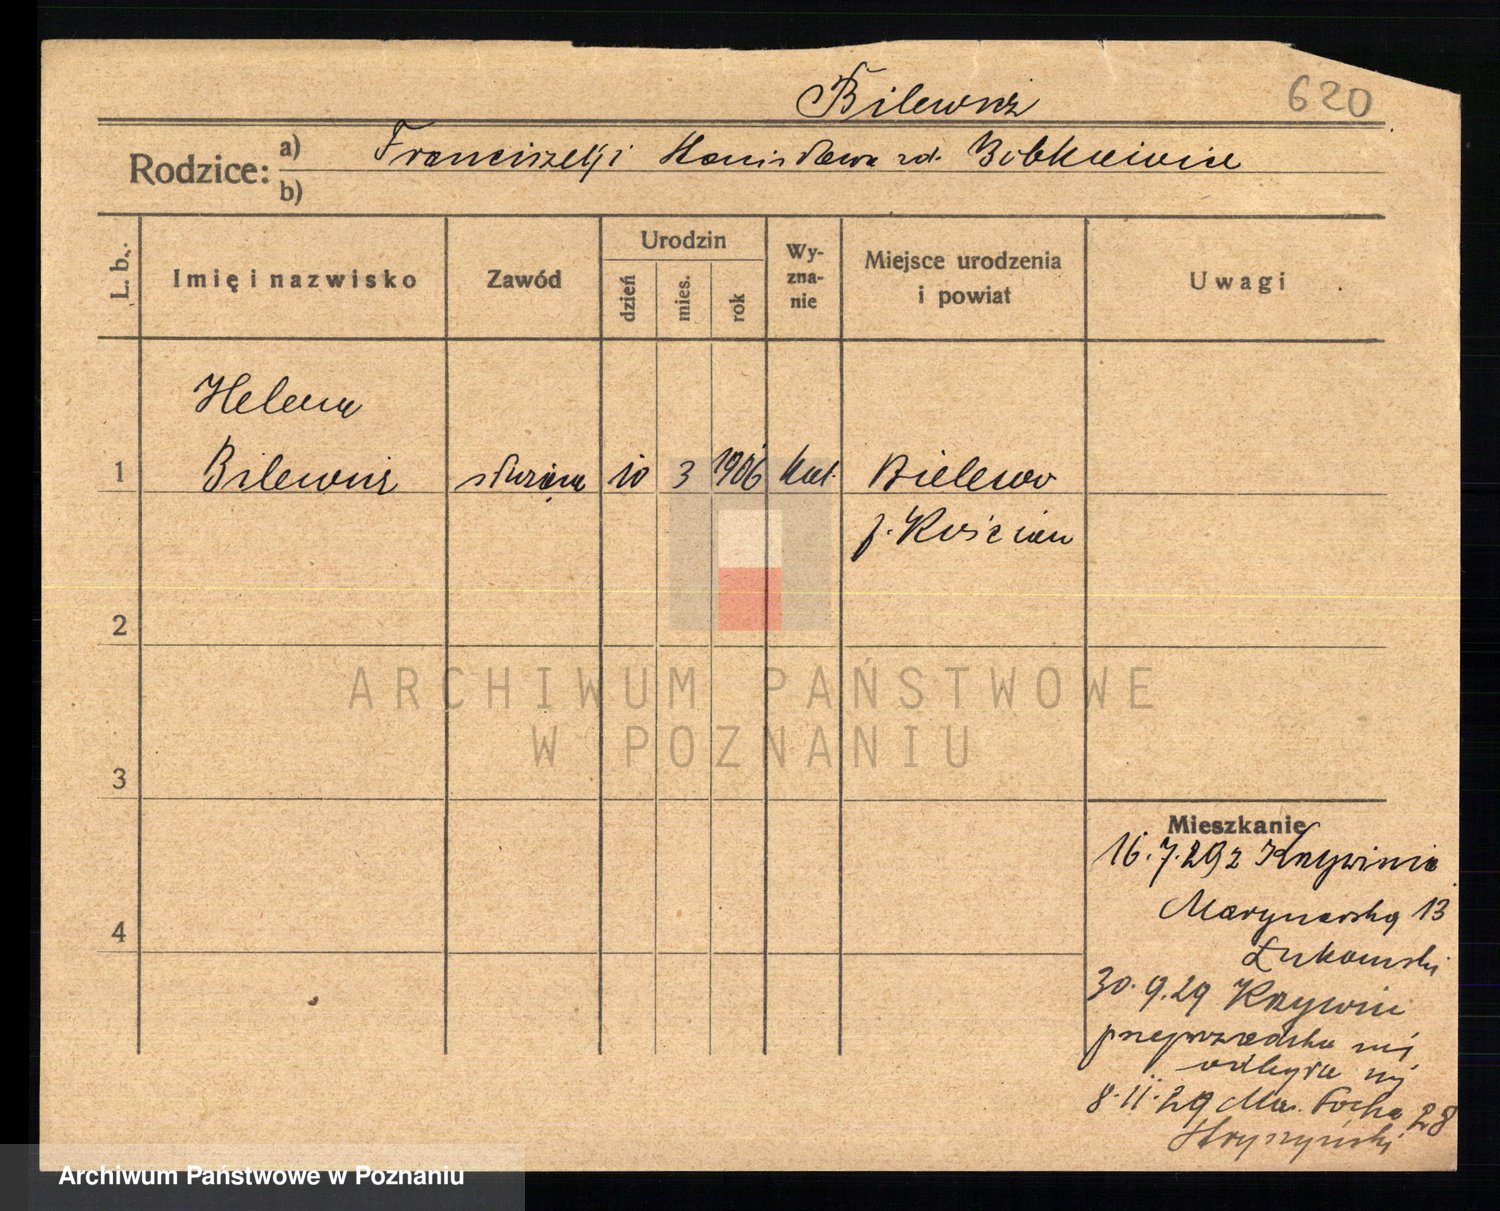 Bilewicz
620
Rodzice: a) Franciszek i Stanisława zd. Bobkiewicz
b)
L. b.
Imię i nazwisko
Zawód
Urodzin
dzień
mies.
rok
Wy-
zna-
nie
Miejsce urodzenia
i powiat
Uwagi
Helena
1 Bilewicz służąca 10 3 1906 kat. Bielewo
p. Kościan
2
3
4
Mieszkanie
16.7.29 z Krzywinia
Marynarska 13
Łukomski
30.9.29 Krzywin
8.11.29 Mar. Focha 28
ARCHIWUM PAŃSTWOWE
W POZNANIU
Archiwum Państwowe w Poznaniu